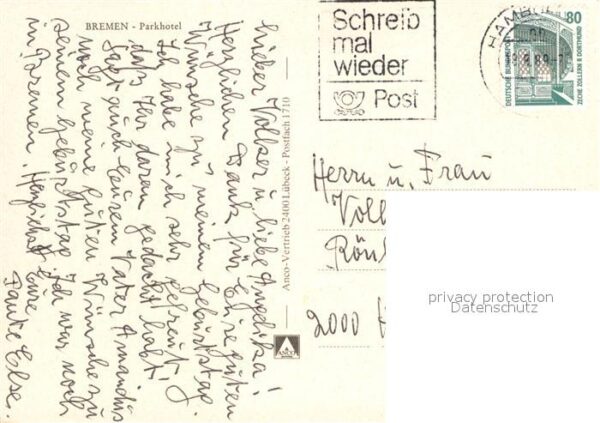 BREMEN - Parkhotel
Lieber Volker u. liebe Angelika!
Herzlichen Dank für Eure guten
Wünsche zu meinem Geburtstag.
Ich habe mich sehr gefreut,
daß Ihr daran gedacht habt!
Sagt auch Eurem Vater Amandus
noch meine guten Wünsche zu
seinem Geburtstag. Ich war noch
in Bremen. Herzlichst Eure
Tante Else.
Anco-Vertrieb 2400 Lübeck - Postfach 1710
ANCO
Schreib
mal
wieder
Post
HAMBU
80
DEUTSCHE BUNDESPOST
ZECHE ZOLLERN II, DORTMUND
Herrn u. Frau
Voll
Rön
2000
privacy protection
Datenschutz